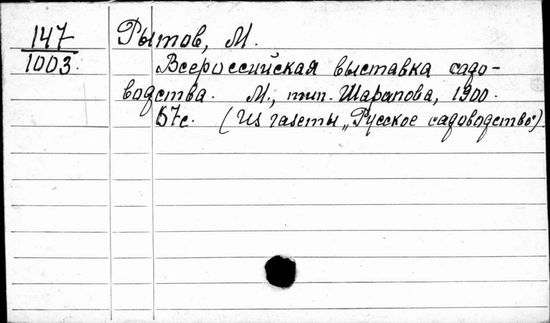 147 Рытов, М.
1003. Всероссийская выставка садо-
водства. М., тип. Шарапова, 1900.
67с. (Из газеты „Русское садоводство“).